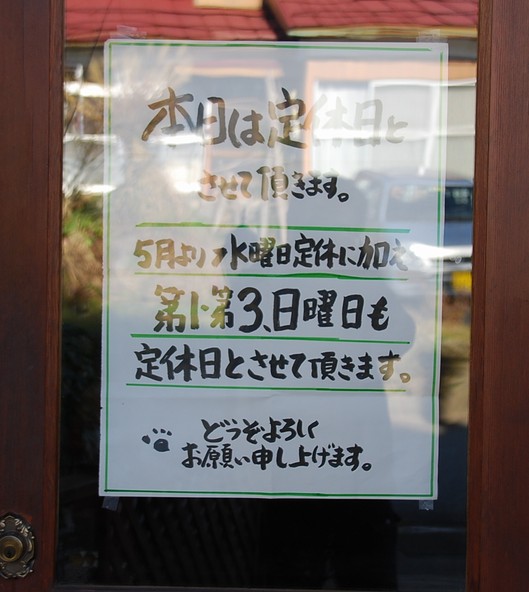 本日は定休日と
させて頂きます。
5月より、水曜日定休に加え
第1・第3、日曜日も
定休日とさせて頂きます。
どうぞよろしく
お願い申し上げます。